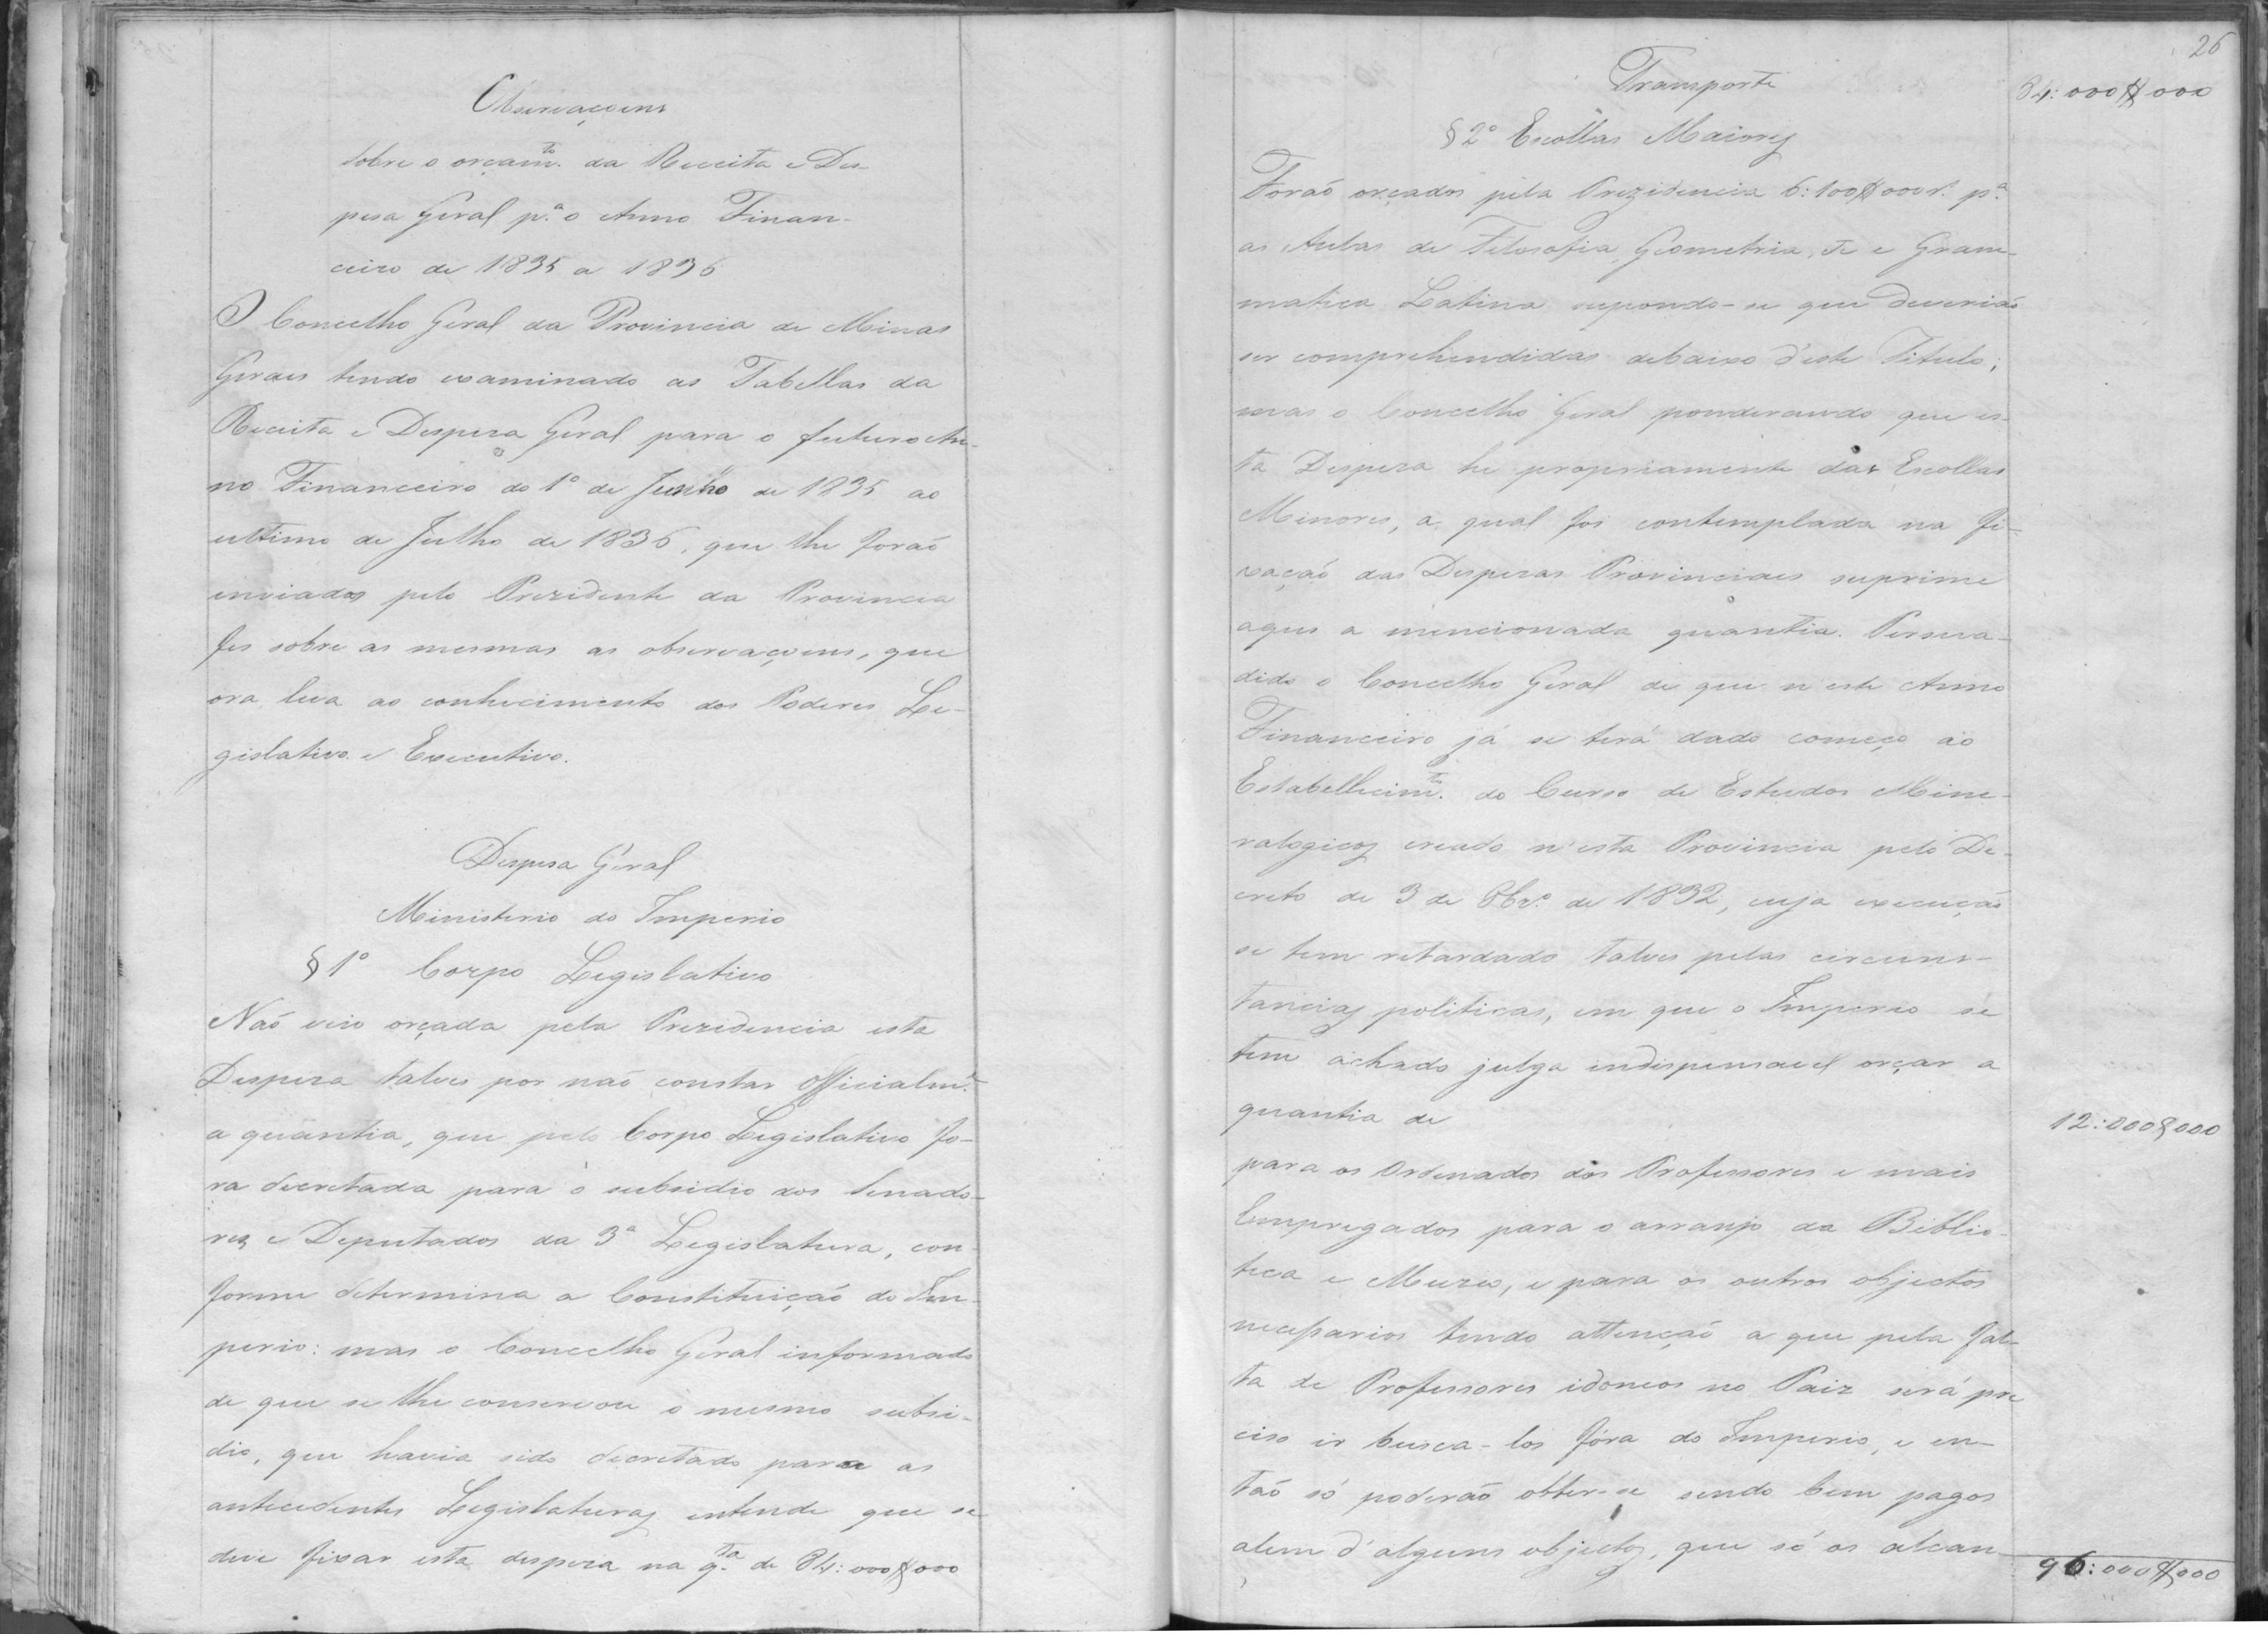 Observaçoens
sobre o orçam.to da Receita e Des-
pesa Geral p.a o Anno Finan-
ceiro de 1835 a 1836
O Concelho Geral da Provincia de Minas
Geraes tendo examinado as Tabellas da
Receita e Despeza Geral para o futuro An-
no Financeiro do 1º de Junho de 1835 ao
ultimo de Julho de 1836, que lhe foraõ
enviadas pelo Prezidente da Provincia
fes sobre as mesmas as observaçoens, que
ora leva ao conhecimento dos Poderes Le-
gislativo e Executivo.
Despesa Geral
Ministerio do Imperio
§ 1º Corpo Legislativo
Naõ veio orçada pela Prezidencia esta
Despeza talves por naõ constar officialm.e
a quantia, que pelo Corpo Legislativo fo-
ra decretada para o subsidio dos Senado-
res e Deputados da 3ª Legislatura, con-
forme determina a Constituiçaõ do Im-
perio: mas o Concelho Geral informado
de que se lhe conservou o mesmo subsi-
dio, que havia sido decretado para as
antecedentes Legislaturas entende que se
deve fixar esta despeza na q.ta de 84:000$000
26
Transporte 84:000$000
§ 2º Escollas Maiores
Foraõ orçados pela Prezidencia 6:100$000 r.s p.a
as Aulas de Filosofia, Geometria, &c e Gram-
matica Latina supondo-se que deveriaõ
ser comprehendidas debaixo d'este Titulo;
mas o Concelho Geral ponderando que es-
ta Despeza he propriamente das Escollas
Minores, a qual foi contemplada na Fi-
xaçaõ das Despezas Provinciaes suprime
aqui a mencionada quantia. Persua-
dido o Concelho Geral de que n'este Anno
Financeiro já se terá dado começo ao
Estabellecim.to do Curso de Estudos Mine-
ralogicos creado n'esta Provincia pelo De-
creto de 3 de 8br.º de 1832, cuja execuçaõ
se tem retardado talves pelas circuns-
tancias politicas, em que o Imperio se
tem achado julga indispensavel orçar a
quantia de 12:000$000
para os Ordenados dos Professores e mais
Empregados para o arranjo da Biblio-
teca e Muzeo, e para os outros objectos
necessarios tendo attençaõ a que pela fal-
ta de Professores idoneos no Paiz será pre
ciso ir busca-los fóra do Imperio, e en-
taõ só poderaõ obter-se sendo bem pagos
alem d'alguns objectos, que só os alcan-
96:000$000